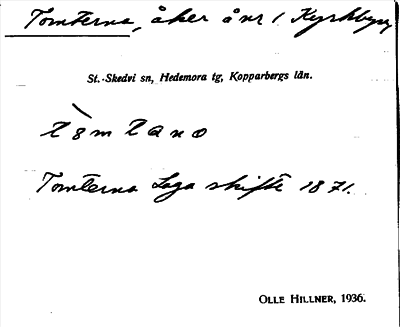 Tomterna, åker å nr 1 Kyrkbyn
St. Skedvi sn, Hedemora tg, Kopparbergs län.
Tomterna Laga skifte 1871.
OLLE HILLNER, 1936.